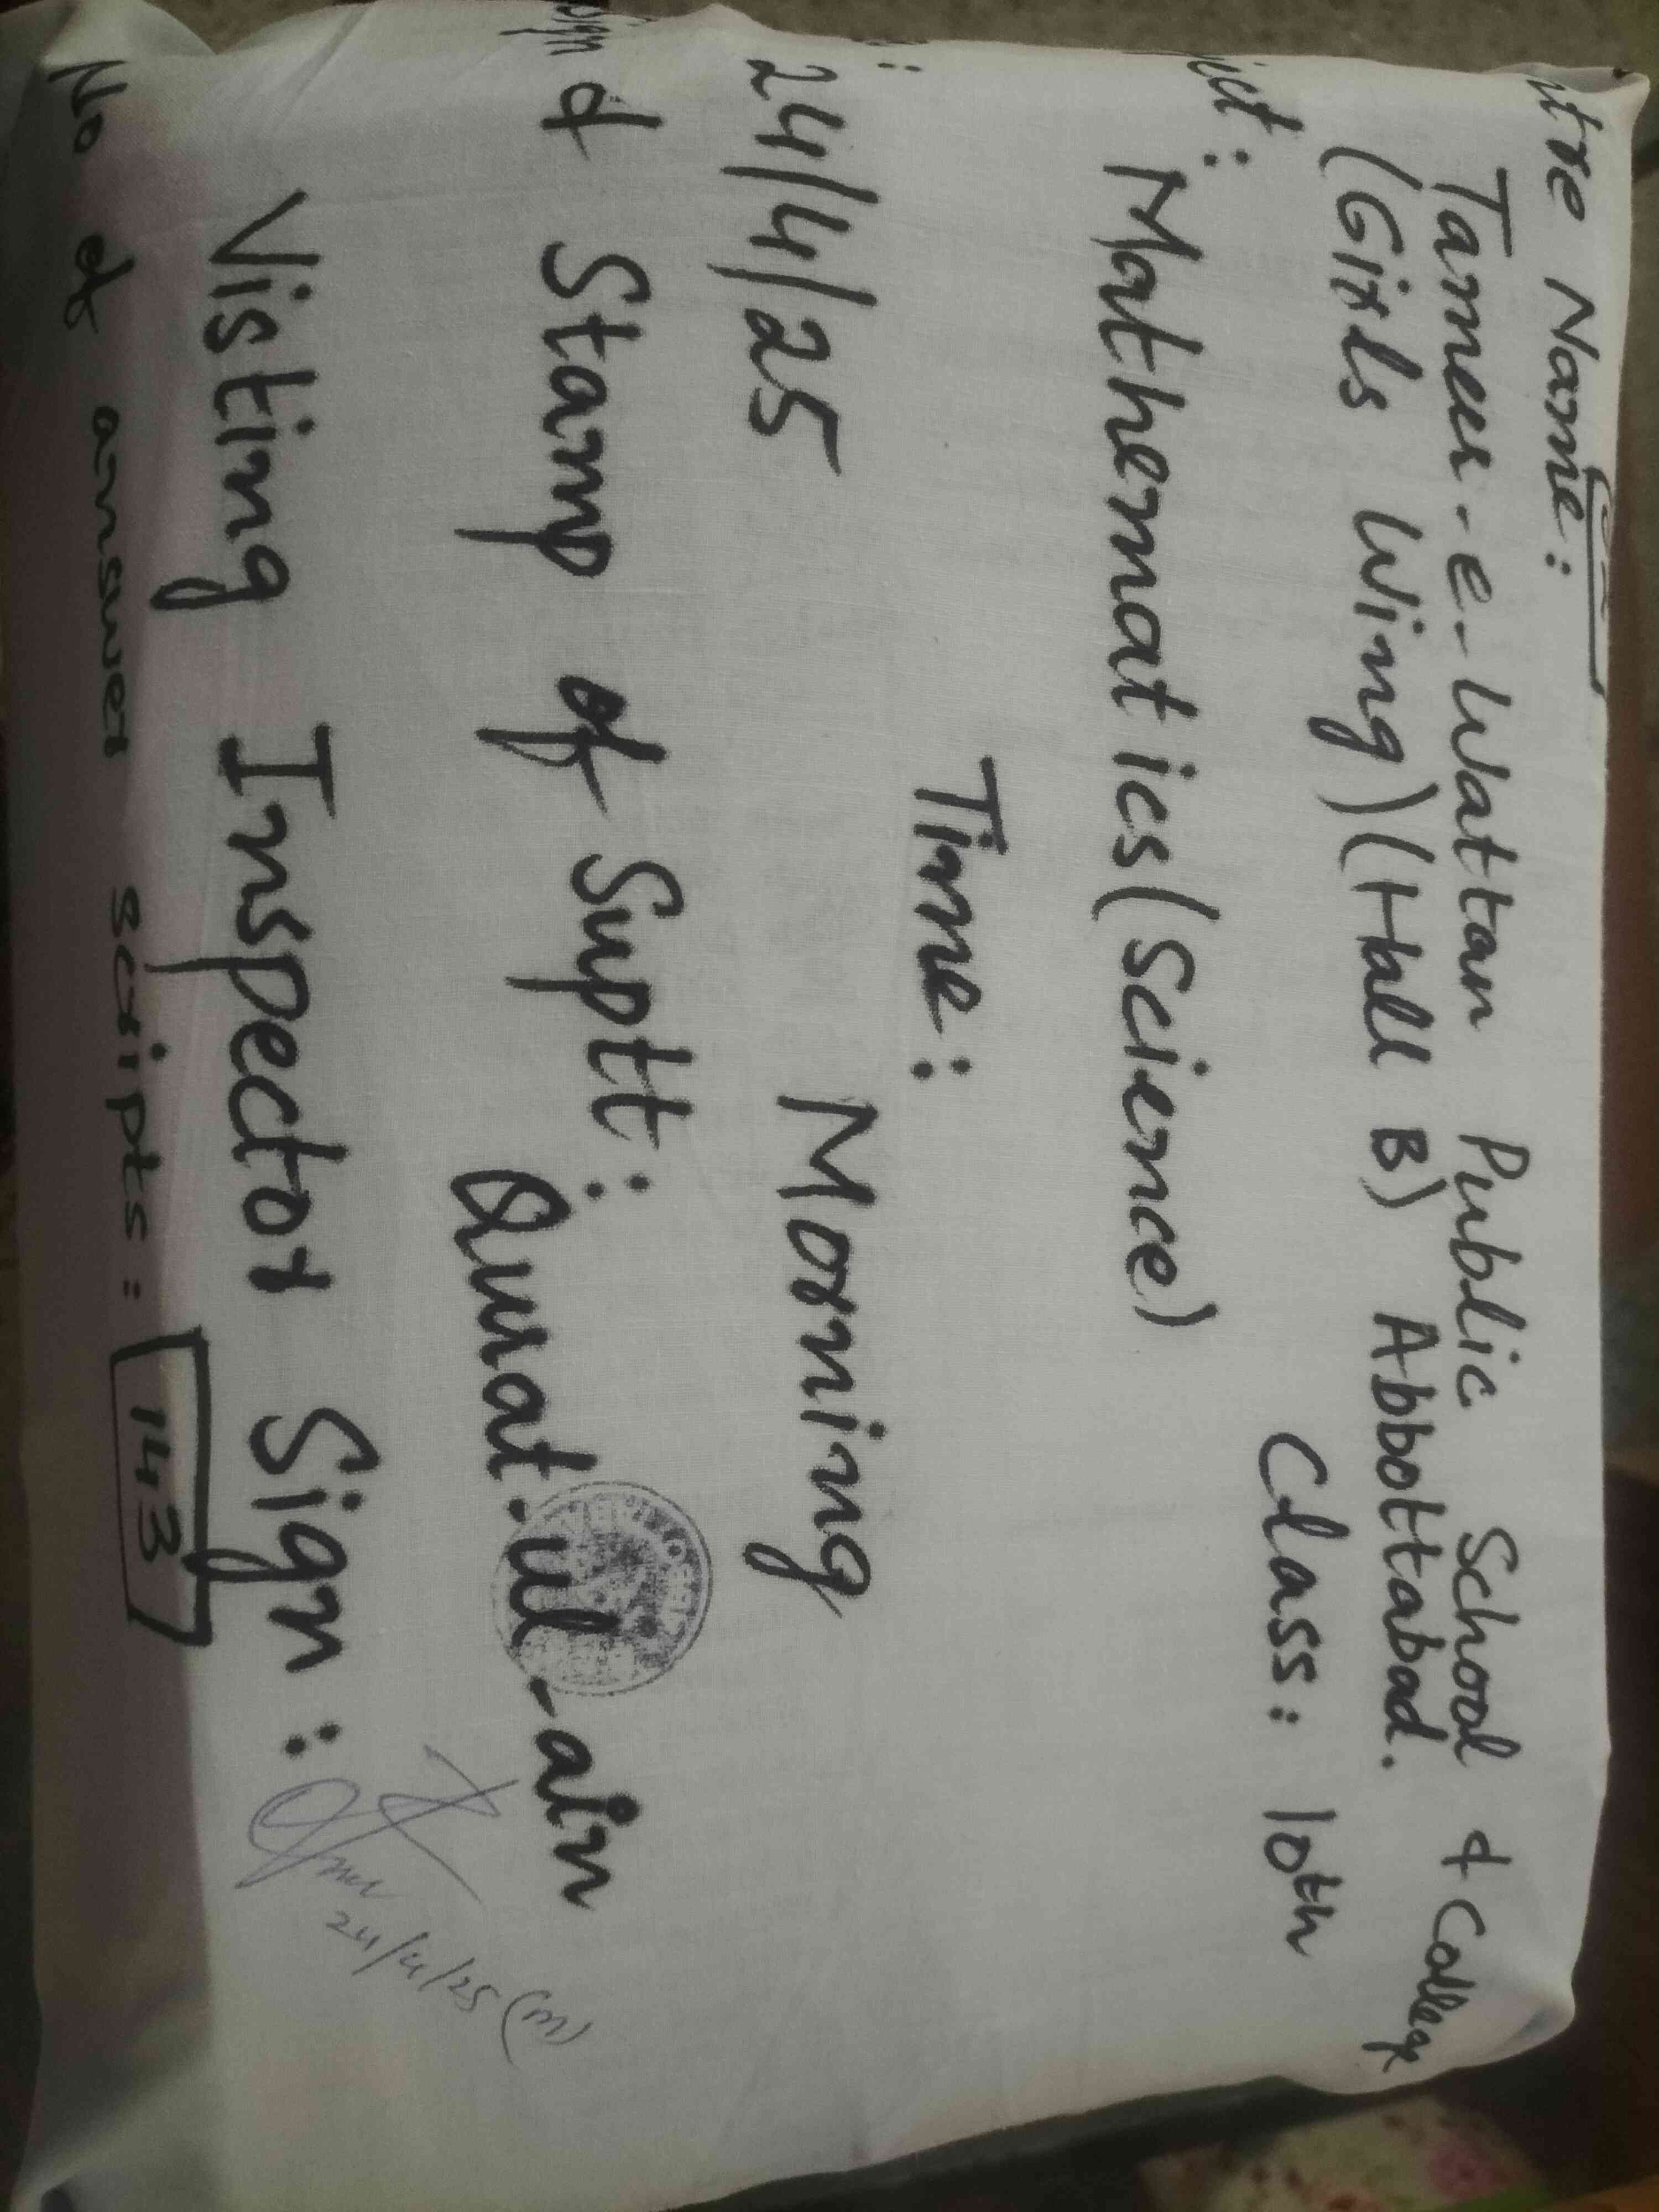 ntre Name:
Tameer-e-Wattan Public School & College
(Girls Wing) (Hall B) Abbottabad.
ject: Class: 10th
Mathematics (Science)
Time:
24/4/25 Morning
Sign & Stamp of Suptt: Qurat-ul-ain
Visting Inspector Sign:
24/4/25 (m)
No of answer scripts = 143